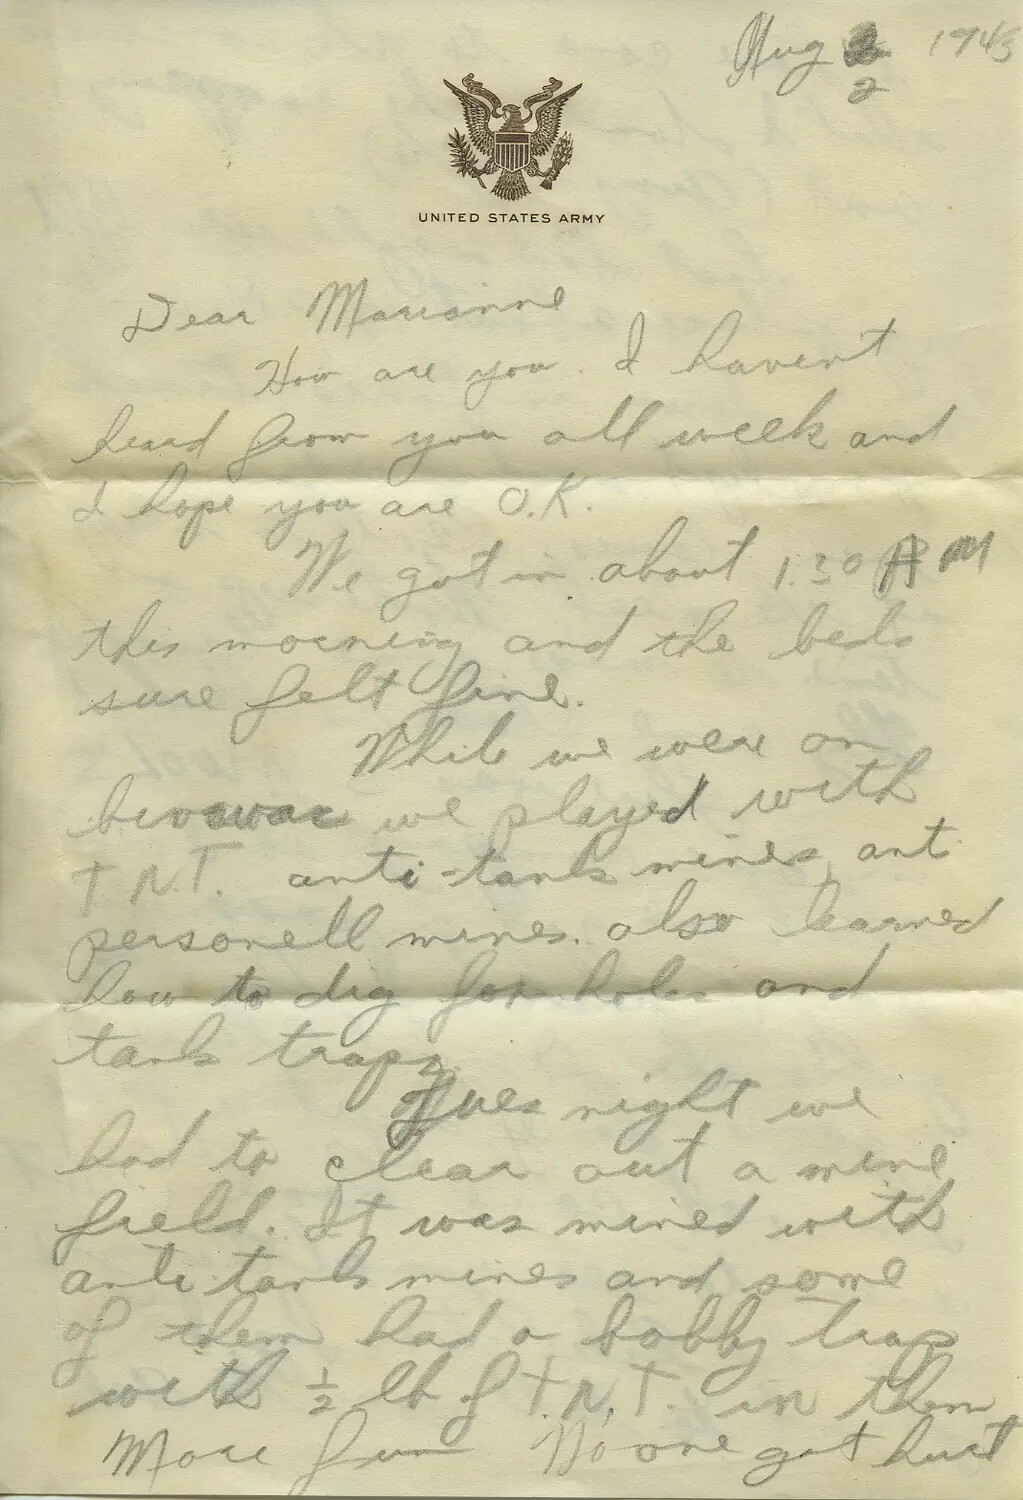 Aug 2 1943
UNITED STATES ARMY
Dear Marianne
How are you. I havent
heard from you all week and
I hope you are O.K.
We got in about 1:30 AM
this morning and the beds
sure felt fine.
While we were on
bivawac we played with
T.N.T. anti-tank mines, ant
personell mines. also learned
how to dig fox holes and
tank traps.
Tues night we
had to clear out a mine
field. It was mined with
anti tank mines and some
of them had a bobby trap
with ½ lb of T.N.T. in them
More fun No one got hurt